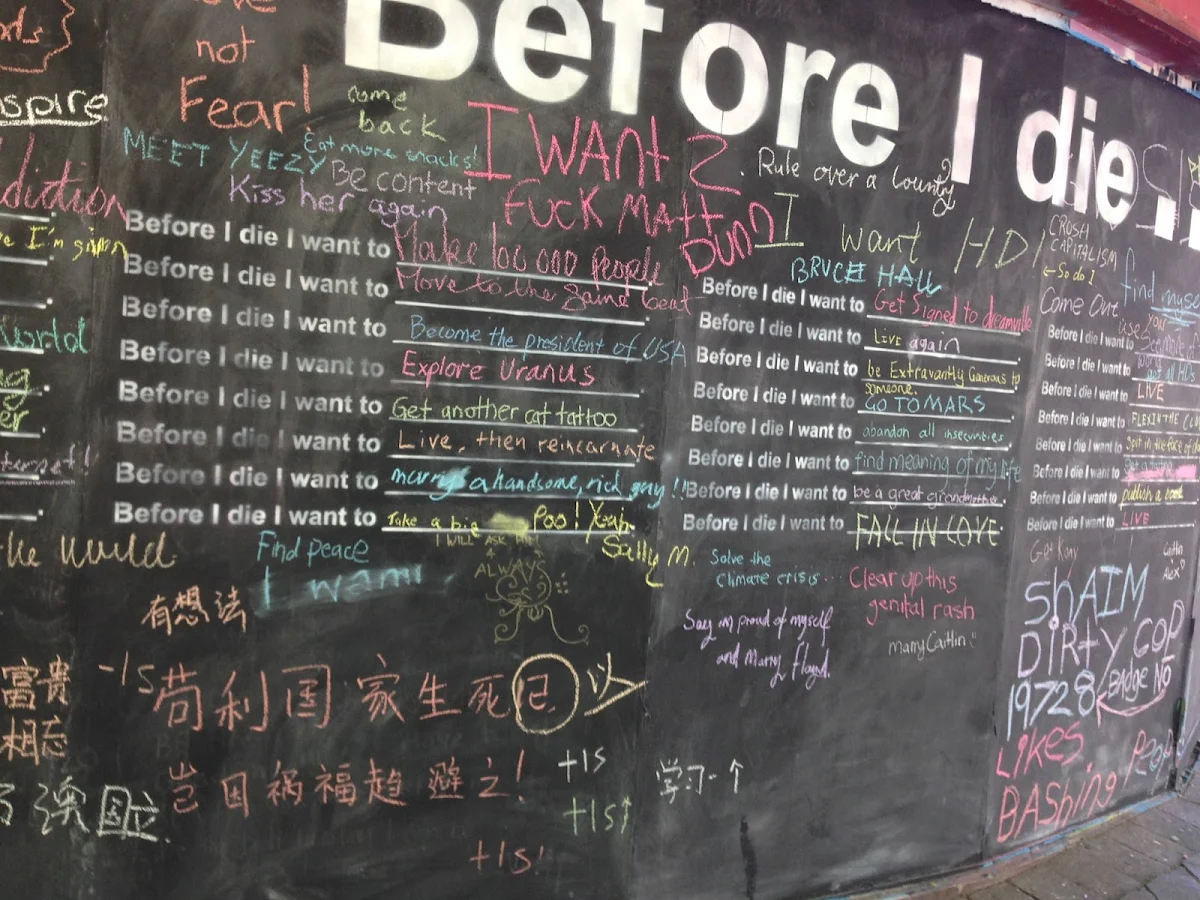 Before I die...
not
Fear!
come
back
nspire
MEET YEEZY
Eat more snacks!
Be content
Kiss her again
I WANt 2
FUCK MAtt
DUNN
Rule over a Country
I want HD!
BRUCE HALL
diction
e I'm given
World
Before I die I want to Make 100 000 People
Before I die I want to Move to the same beat
Before I die I want to Become the president of USA
Before I die I want to Explore Uranus
Before I die I want to Get another cat tattoo
Before I die I want to Live, then reincarnate
Before I die I want to marry a handsome, rich guy!!
Before I die I want to Take a big Poo! Yeah
Before I die I want to Get Signed to dreamville
Before I die I want to LIVE again
Before I die I want to be Extravantly Generous to
someone.
Before I die I want to GO TO MARS
Before I die I want to abandon all insecurities
Before I die I want to find meaning of my life
Before I die I want to be a great grandmother.
Before I die I want to FALL IN LOVE
CRUSH
CAPITALISM
←So do I
find mys
Come Out
Before I die I want to
Before I die I want to
Before I die I want to LIVE
Before I die I want to
Before I die I want to
Before I die I want to
Before I die I want to publish a book
Before I die I want to LIVE
the world
Find peace
I want
I WILL ASK
ALWAYS
Sally M.
Solve the
Climate crisis...
Clear up this
genital rash
Say im proud of myself
and Marry Floyd.
marry Caitlin
Get Kony
Caitlin
+
Alex
ShAIM
DIRTY COP
19728 BADge NO
LIKES
BAShing PeoP
有想法
富贵
相忘
澳国立
-1s
苟利国家生死已以
岂因祸福趋避之!
+1s
+1s↑
+1s!
学习一个